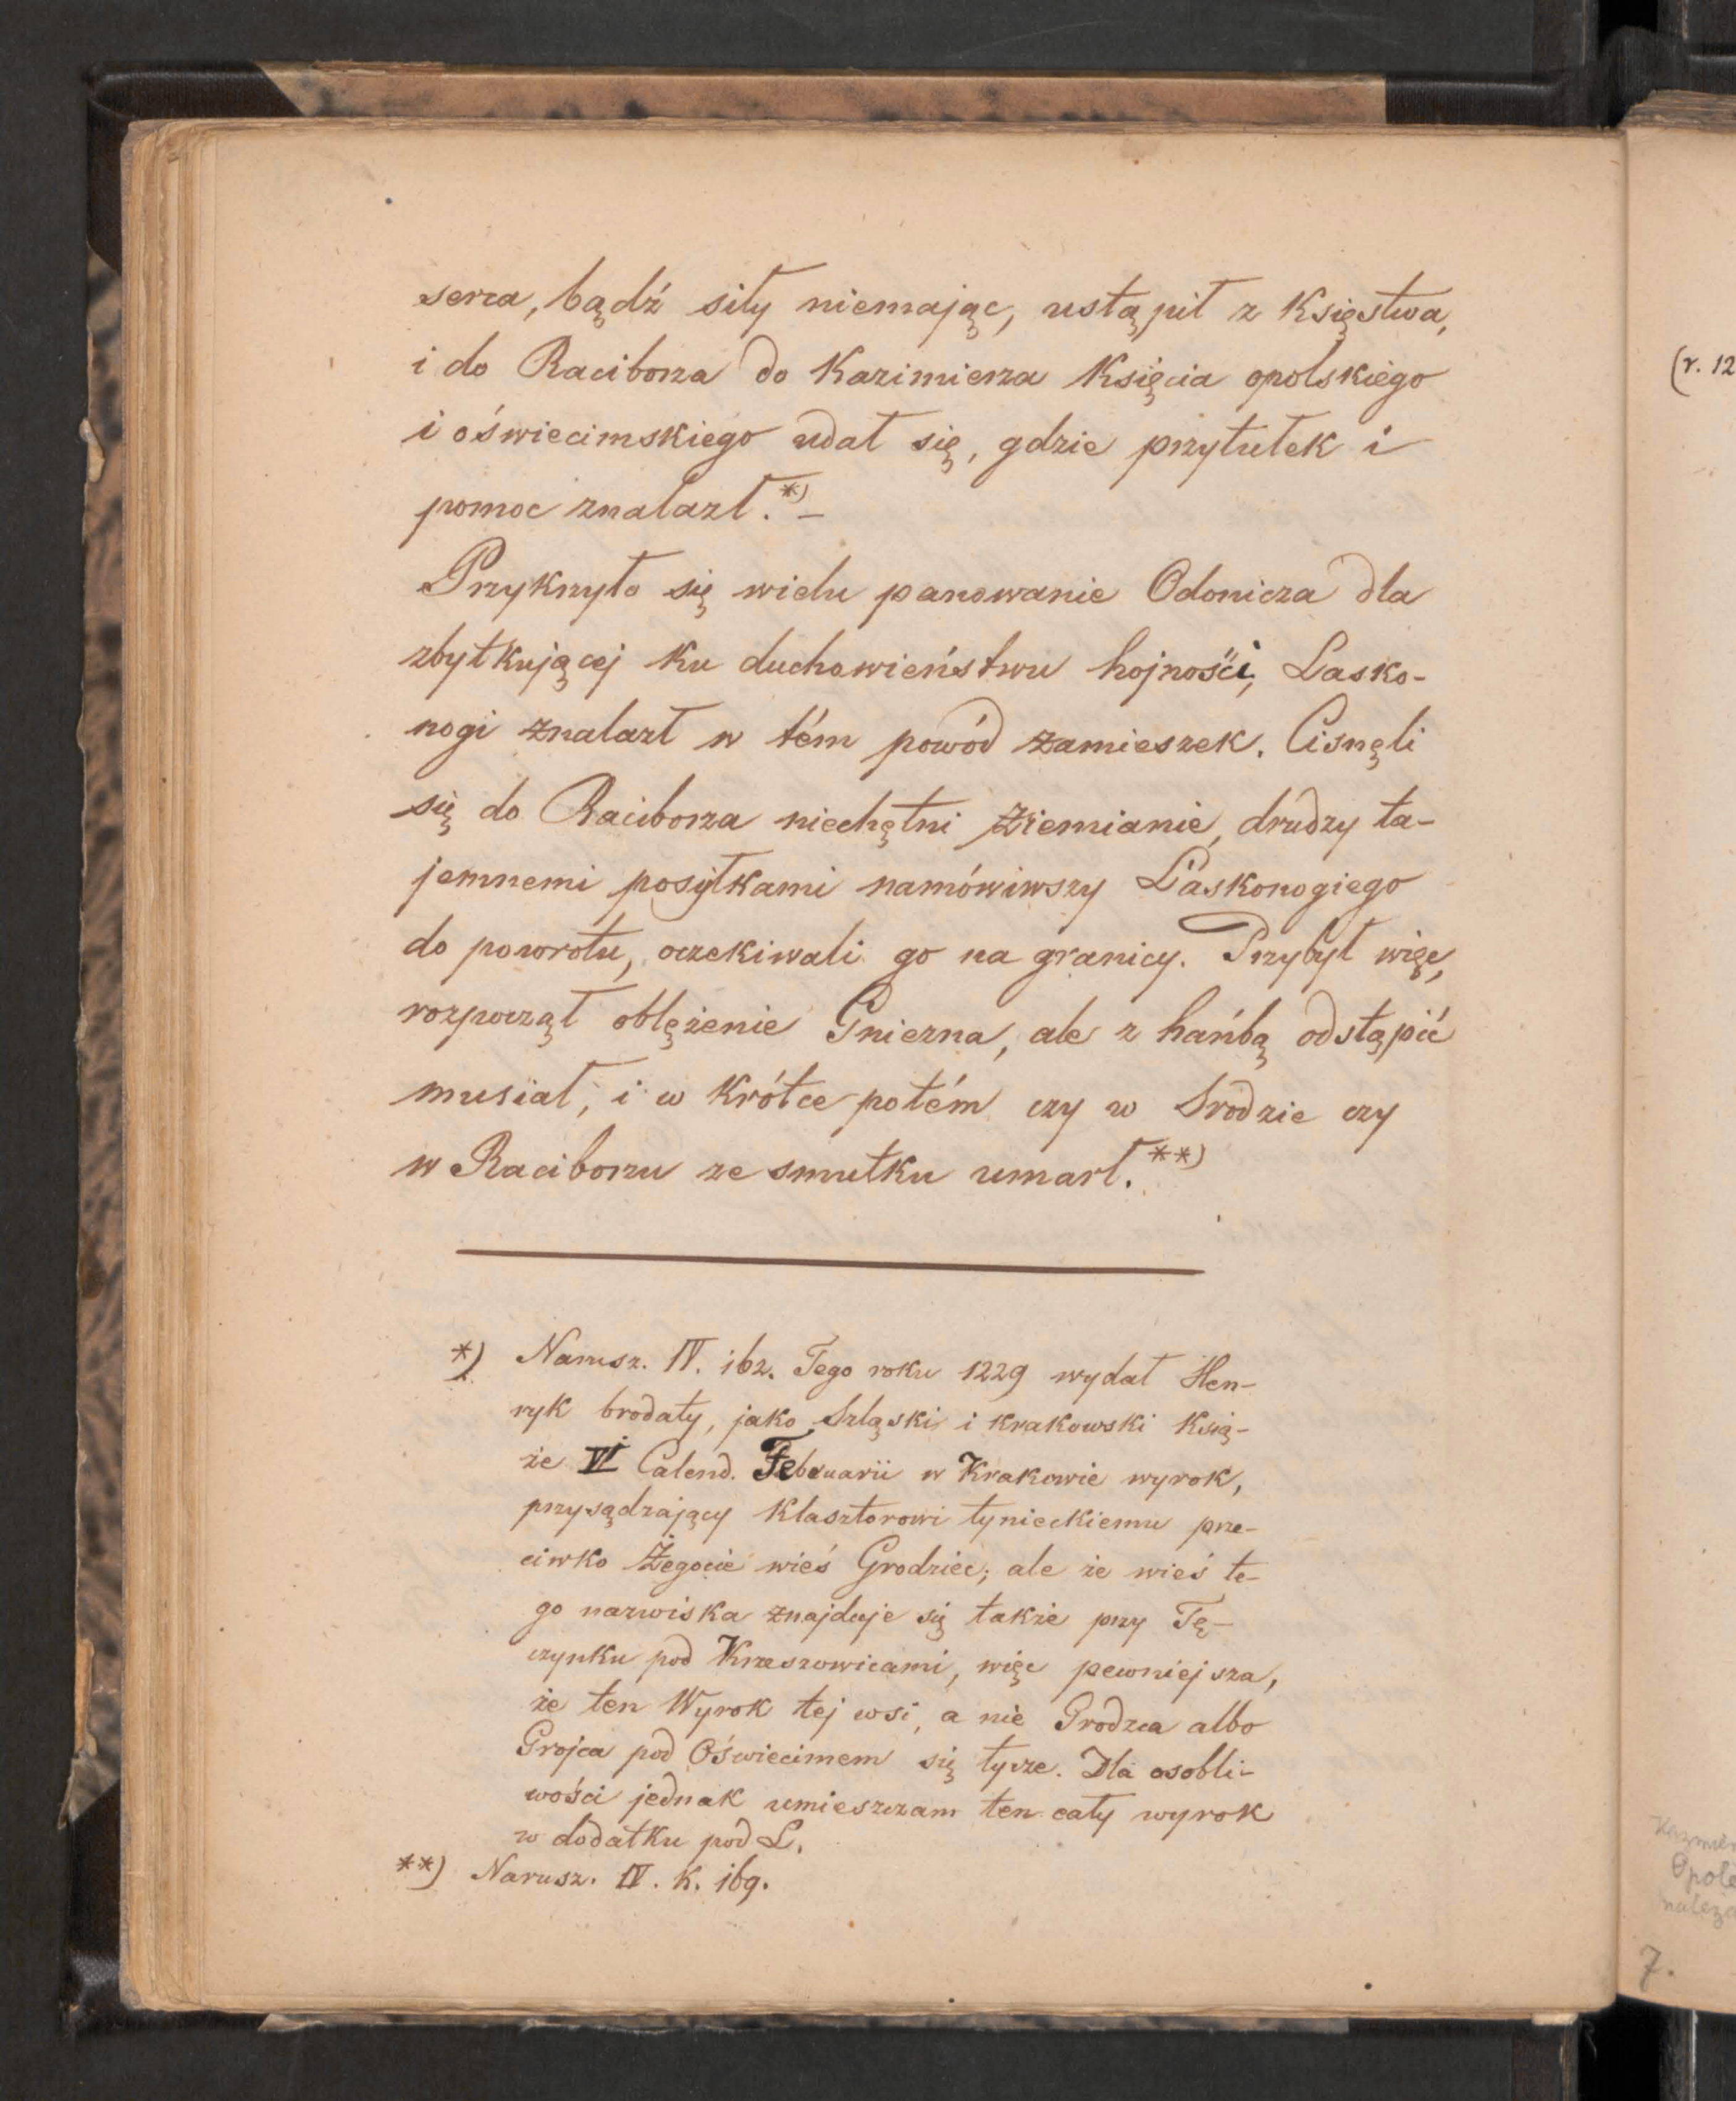 serca, bądź siły niemając, ustąpił z Księstwa,
i do Raciborza do Kazimierza Księcia opolskiego
i oświecimskiego udał się, gdzie przytułek i
pomoc znalazł.*) –
Przykrzyło się wielu panowanie Odonicza dla
zbytkującej ku duchowieństwu hojności, Lasko-
nogi znalazł w tém powód zamieszek. Cisnęli
się do Raciborza niechętni Ziemianie, drudzy ta-
jemnemi posyłkami namówiwszy Laskonogiego
do powrotu, oczekiwali go na granicy. Przybył więc,
rozpoczął oblężenie Gniezna, ale z hańbą odstąpić
musiał, i w krótce potém czy w Srodzie czy
w Raciborzu ze smutku umarł.**)
*) Narusz. IV. 162. Tego roku 1229 wydał Hen-
ryk brodaty, jako Szląski i krakowski Ksią-
że VI Calend. Februarii w Krakowie wyrok,
przysądzający klasztorowi tynieckiemu prze-
ciwko Żegocie wieś Grodziec; ale że wieś te-
go nazwiska znajduje się także przy Tę-
czynku pod Krzeszowicami, więc pewniejsza,
że ten Wyrok tej wsi, a nie Grodzca albo
Grojca pod Oświecimem się tycze. Dla osobli-
wości jednak umieszczam ten cały wyrok
w dodatku pod L.
**) Narusz. IV. k. 169.
(r. 12
Opole
7.